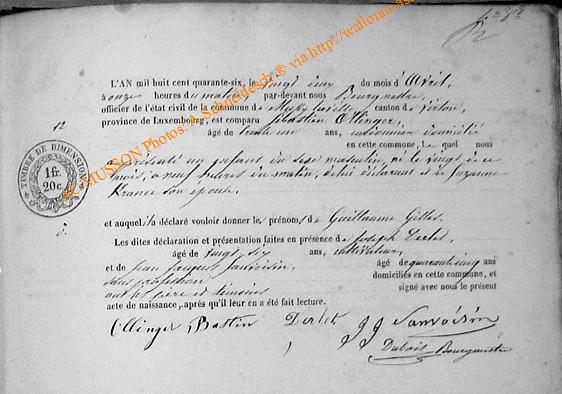 f. 282
L'AN mil huit cent quarante-six, le vingt deux du mois d'Avril,
à onze heures du matin, par-devant nous Bourgmestre
officier de l'état civil de la commune de Mussy-la-ville, canton de Virton,
province de Luxembourg, est comparu Sébastien Ollinger,
12
âgé de trente un ans, cordonnier domicilié
en cette commune, lequel nous
a présenté un enfant du sexe masculin, né le vingt de ce
mois, à neuf heures du matin, de lui déclarant et de Suzanne
France son épouse
TIMBRE DE DIMENSION
1 fr.
20 c.
et auquel il a déclaré vouloir donner les prénoms de Guillaume Gilles.
Les dites déclaration et présentation faites en présence de Joseph Derlet,
âgé de vingt six ans, cultivateur,
et de Jean Jacques Sauvoisin, âgé de quarante cinq ans
sans profession domiciliés en cette commune, et
ont les père et témoins signé avec nous le présent
acte de naissance, après qu'il leur en a été fait lecture.
Ollinger Bastin Derlet JJ Sauvoisin
Dubois Bourgmestre
MUSSON Photos: A. Schneidesch ® via http://wallonia